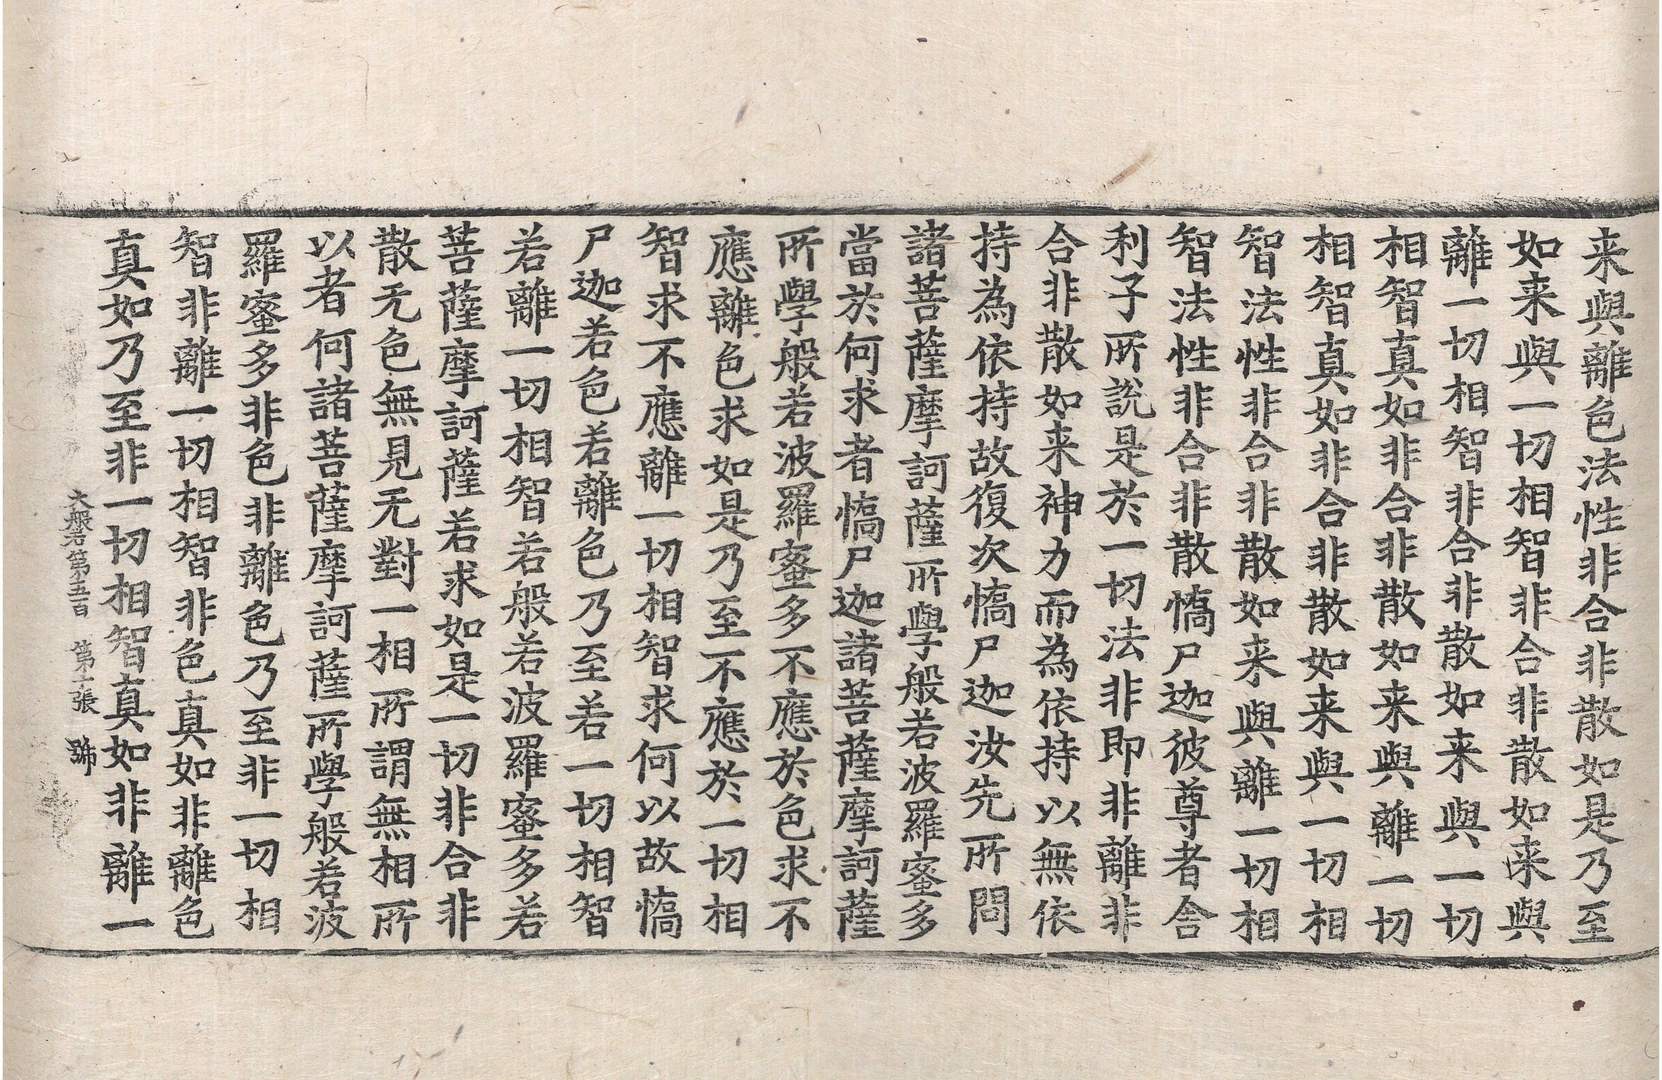 来與離色法性非合非散如是乃至
如来與一切相智非合非散如来與
離一切相智非合非散如来與一切
相智真如非合非散如来與離一切
相智真如非合非散如来與一切相
智法性非合非散如来與離一切相
智法性非合非散憍尸迦彼尊者舎
利子所說是於一切法非即非離非
合非散如来神力而為依持以無依
持為依持故復次憍尸迦汝先所問
諸菩薩摩訶薩所學般若波羅蜜多
當於何求者憍尸迦諸菩薩摩訶薩
所學般若波羅蜜多不應於色求不
應離色求如是乃至不應於一切相
智求不應離一切相智求何以故憍
尸迦若色若離色乃至若一切相智
若離一切相智若般若波羅蜜多若
菩薩摩訶薩若求如是一切非合非
散无色無見无對一相所謂無相所
以者何諸菩薩摩訶薩所學般若波
羅蜜多非色非離色乃至非一切相
智非離一切相智非色真如非離色
真如乃至非一切相智真如非離一
大般若第五百 第十張 號